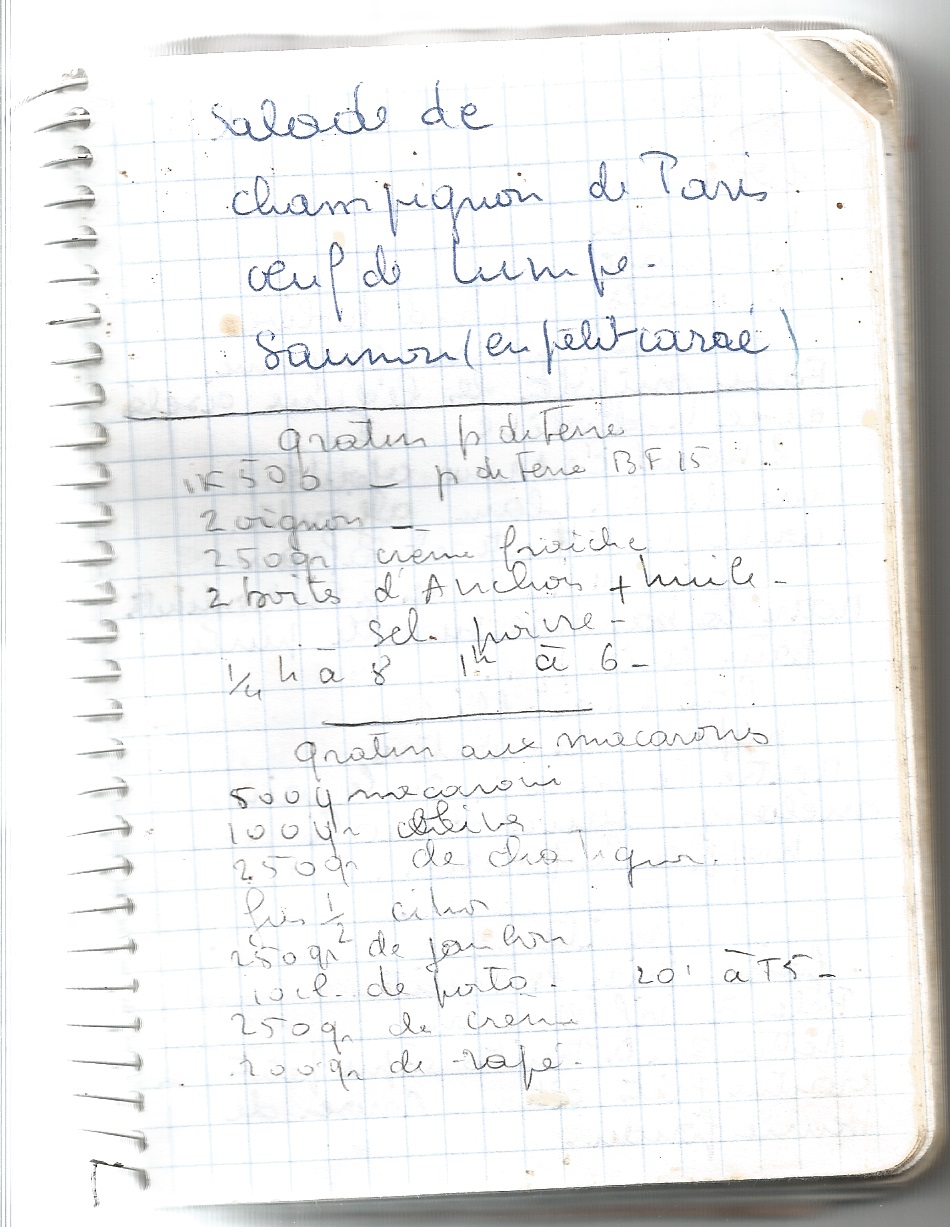 Salade de
champignon de Paris.
oeuf de lumpe.
Saumon (en petit carré)
gratin p de Terre
1K500 – p de Terre BF15
2 oignon –
250gr crème fraiche
2 boits d'Anchois + huile –
Sel. poivre –
1/4 h à 8 1h à 6 –
gratin aux macaronis
500g macaroni
100gr olive
250gr de
jus 1/2 citron
250gr de jambon
10cl. de porto. 20' à T5 –
250gr de crème
200gr de rapé.